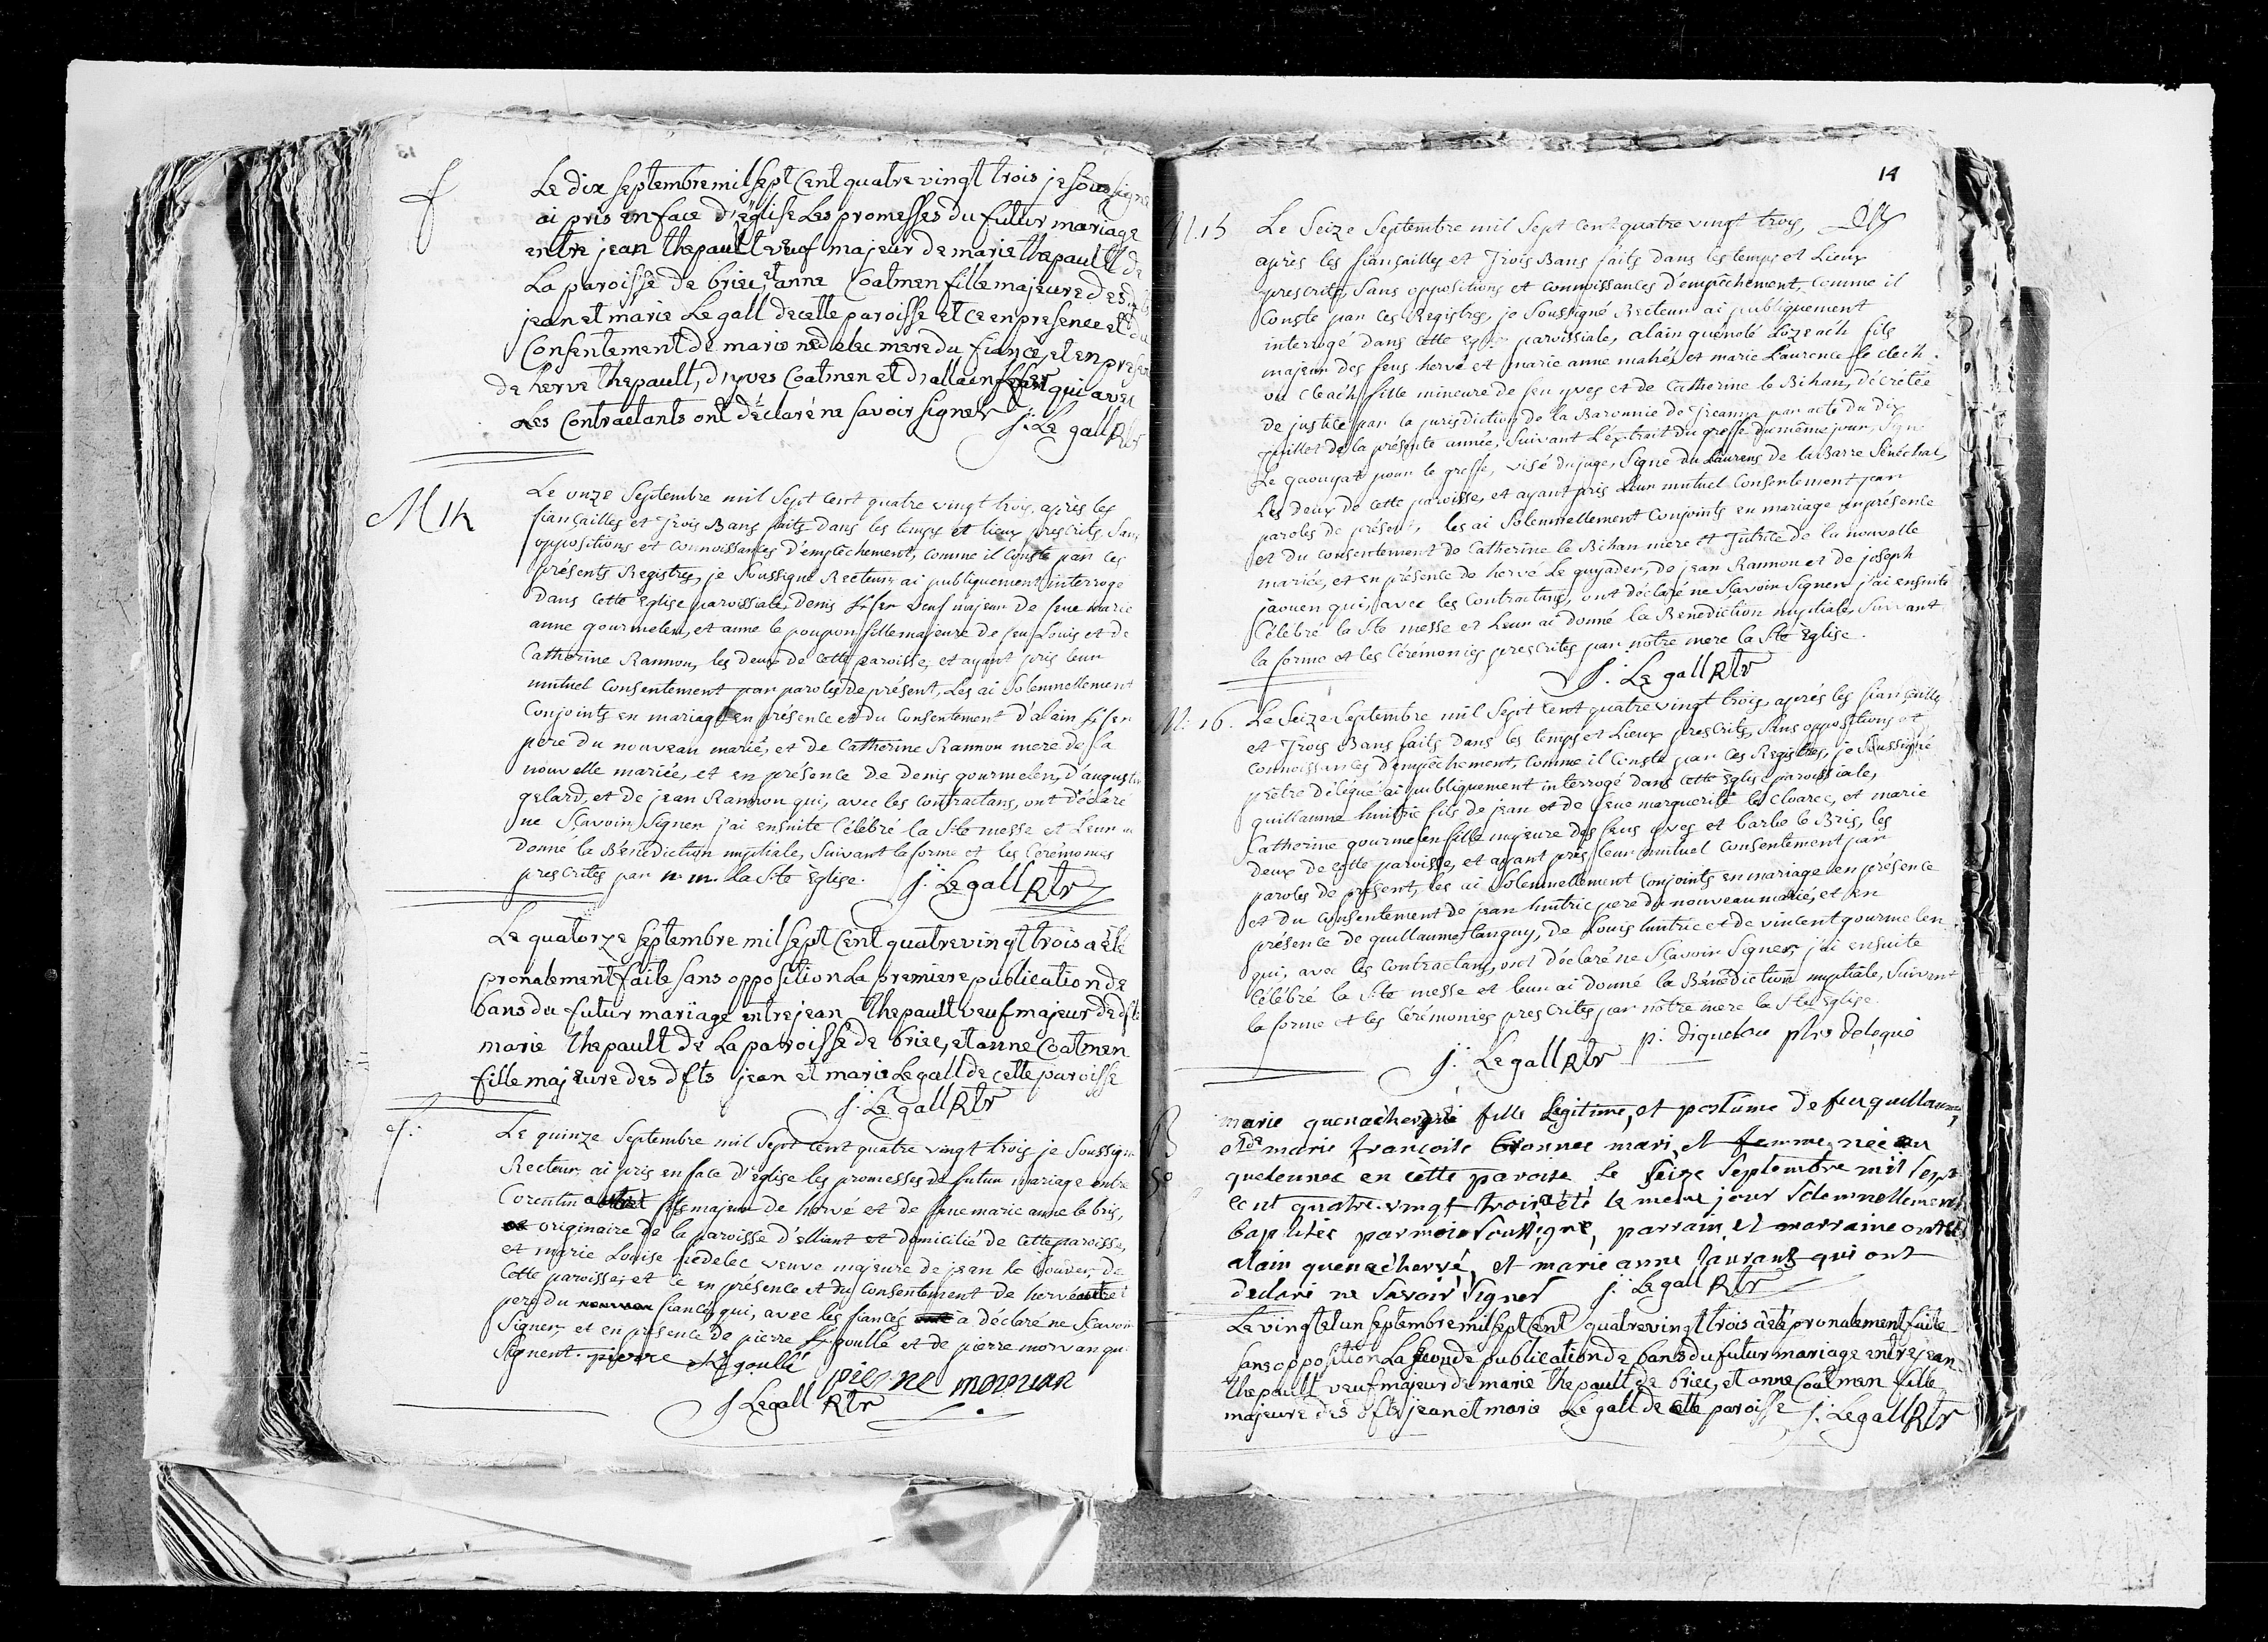 f
Le dix septembre mil sept Cent quatre vingt trois je soussigné
ai pris en face d'église Les promesses du futur mariage
entre jean thepault veuf majeur de marie thepault de
La paroisse de briec, et anne Coatmen fille majeure des
jean et marie Le gall de cette paroisse et ce en presence et du
Consentement de marie nedelec mere du fiancé, et en
de herve thepault, d'yves Coatmen et d'allain qui avec
Les Contractants ont déclaré ne savoir signer J: Le gall Rtr
M 14
Le onze Septembre mil Sept Cent quatre vingt trois, après les
fiançailles et trois Bans faits dans les temps et lieux prescrits, Sans
oppositions et connoissances d'empêchement, comme il Conste par ces
présents Registres, je Soussigné Recteur, ai publiquement interrogé
dans cette Eglise paroissiale, denis veuf majeur de feue marie
anne gourmelen, et anne le poupon fille majeure de feu Louis et de
Catherine Rannou, les deux de cette paroisse, et ayant pris leur
mutuel Consentement par paroles de présent, Les ai Solemnellement
Conjoints en mariage en présence et du Consentement d'alain
pere du nouveau marié, et de Catherine Rannou mere de la
nouvelle mariée, et en présence de denis gourmelen, d'augustin
gelard, et de jean Rannou qui, avec les contractans, ont déclaré
ne Sçavoir Signer j'ai ensuite Célébré la Ste messe et Leur ai
donné la Bénédiction nuptiale, Suivant la forme et les Cérémonies
prescrites par n. m. la Ste Eglise. J: Le gall Rtr
Le quatorze septembre mil sept Cent quatre vingt trois a été
pronalement faite sans opposition La premiere publication de
bans du futur mariage entre jean thepault veuf majeur de dfte
marie thepault de La paroisse de briec, et anne Coatmen
fille majeure des dfts jean et marie Le gall de cette paroisse
J: Le gall Rtr
f:
Le quinze Septembre mil Sept Cent quatre vingt trois je Soussigné
Recteur, ai pris en face d'église les promesses de futur mariage entre
Corentin autret fils majeur de hervé et de feue marie anne le bris,
originaire de la paroisse d'elliant et domicilié de cette paroisse,
et marie Louise nedelec veuve majeure de jean le de
Cette paroisse, et ce en présence et du Consentement de hervé autret
pere du fiancé, qui, avec les fiancés a déclaré ne Sçavoir
Signer, et en présence de pierre Le goullé et de pierre morvan qui
Signent. pierre Le goullé
pierre morvan
J Legall Rtr
14
N. 15
Le Seize Septembre mil Sept Cent quatre vingt trois,
après les fiançailles et trois Bans faits dans les temps et Lieux
prescrits, Sans oppositions et connoissances d'empêchement, comme il
Conste par ces Registres, je Soussigné Recteur ai publiquement
interrogé dans cette Eglise paroissiale, alain guénolé Lozeach fils
majeur des feus hervé et marie anne mahé, et marie Laurence le clech
ou cleach fille mineure de feu yves et de Catherine le Bihan, décretée
de justice par la jurisdiction de la Baronnie de par acte du dix
juillet de la présente année, Suivant L'extrait du greffe du même jour, Signé
Le gaouyat pour le greffe, visé du juge, Signé du Laurens de la Barre Sénéchal,
Les deux de cette paroisse, et ayant pris Leur mutuel Consentement par
paroles de présent, les ai Solemnellement Conjoints en mariage en présence
et du consentement de Catherine le Bihan mere et Tutrice de la nouvelle
mariée, et en présence de hervé Le guyader, de jean Rannou et de joseph
jaouen qui, avec les Contractans, ont déclaré ne Sçavoir Signer j'ai ensuite
Célébré la Ste messe et Leur ai donné la Bénédiction nuptiale, Suivant
la forme et les Cérémonies prescrites par nôtre mere la Ste Eglise.
J: Le gall Rtr
N. 16.
Le Seize Septembre mil Sept Cent quatre vingt trois, après les fiançailles
et trois Bans faits dans les temps et Lieux prescrits, Sans oppositions et
connoissances d'empêchement, comme il Conste par ces Registres, je Soussigné
prêtre délégué ai publiquement interrogé dans cette Eglise paroissiale,
guillaume huitric fils de jean et de feue marguerite le cloarec, et marie
Catherine gourmelen fille majeure des feus yves et barbe le Bris, les
deux de cette paroisse, et ayant pris leur mutuel consentement par
paroles de présent, les ai Solemnellement Conjoints en mariage en présence
et du Consentement de jean huitric pere du nouveau marié, et en
présence de guillaume tanguy, de Louis huitric et de vincent gourmelen
qui, avec les Contractans, ont déclaré ne Sçavoir Signer, j'ai ensuite
Célébré la Ste messe et leur ai donné la Bénédiction nuptiale, Suivant
la forme et les Cérémonies prescrites par nôtre mere la Ste Eglise.
p: diquelou ptre délégué
J: Le gall Rtr
B
50
marie quenacherve fille Legitime, et postume de feu guillaume,
et de marie françoise mari et femme, née au
quelennec en cette paroisse le Seize Septembre mil Sept
cent quatre-vingt-trois a été le meme jour Solemnellement
baptisée par moi Soussigné, parrain et marraine ont été
alain quenacherve, et marie anne laurans qui ont
déclaré ne Savoir Signer J: Le gall Rtr
Le vingt et un septembre mil sept Cent quatre vingt trois a été pronalement faite
sans opposition La seconde publication de bans du futur mariage entre jean
thepault veuf majeur de marie thepault de briec, et anne Coatmen fille
majeure des dfts jean et marie Le gall de cette paroisse J: Le gall Rtr